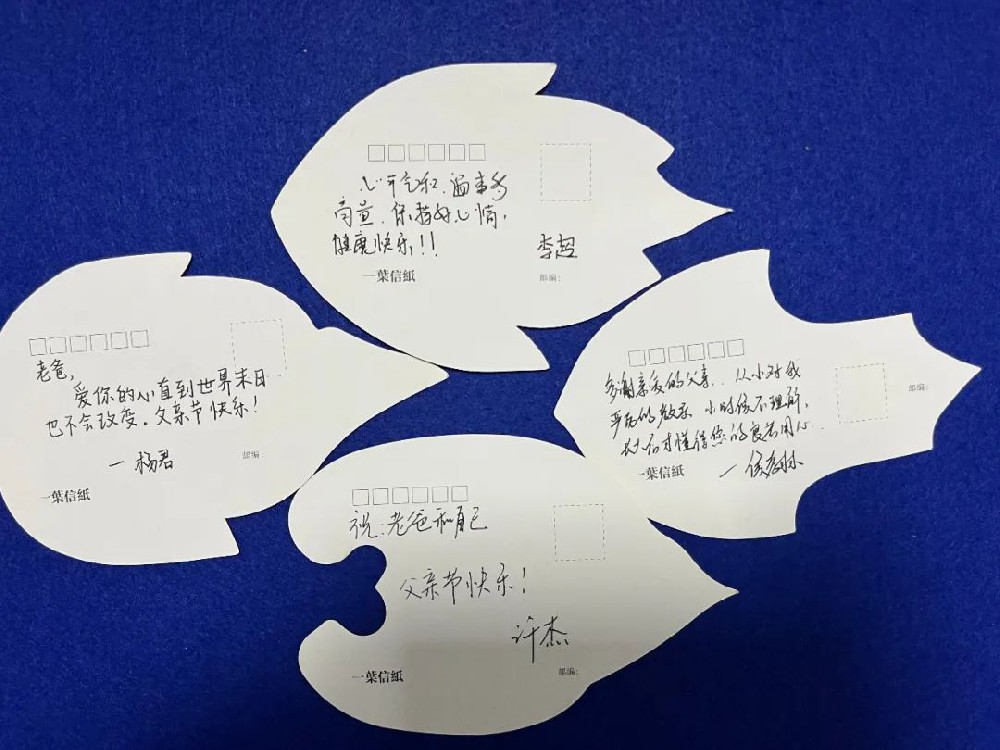 心平气和,遇事多
商量,保持好心情,
健康快乐!!
李超
一葉信紙
邮编:
老爸,
爱你的心直到世界末日
也不会改变。父亲节快乐!
一杨君
邮编
一葉信紙
多谢亲爱的父亲,从小对我
严厉的教育 小时候不理解,
长大后才懂得您的良苦用心.
邮编:
一葉信紙
祝:老爸和自己
父亲节快乐!
许杰
一葉信紙
邮编: